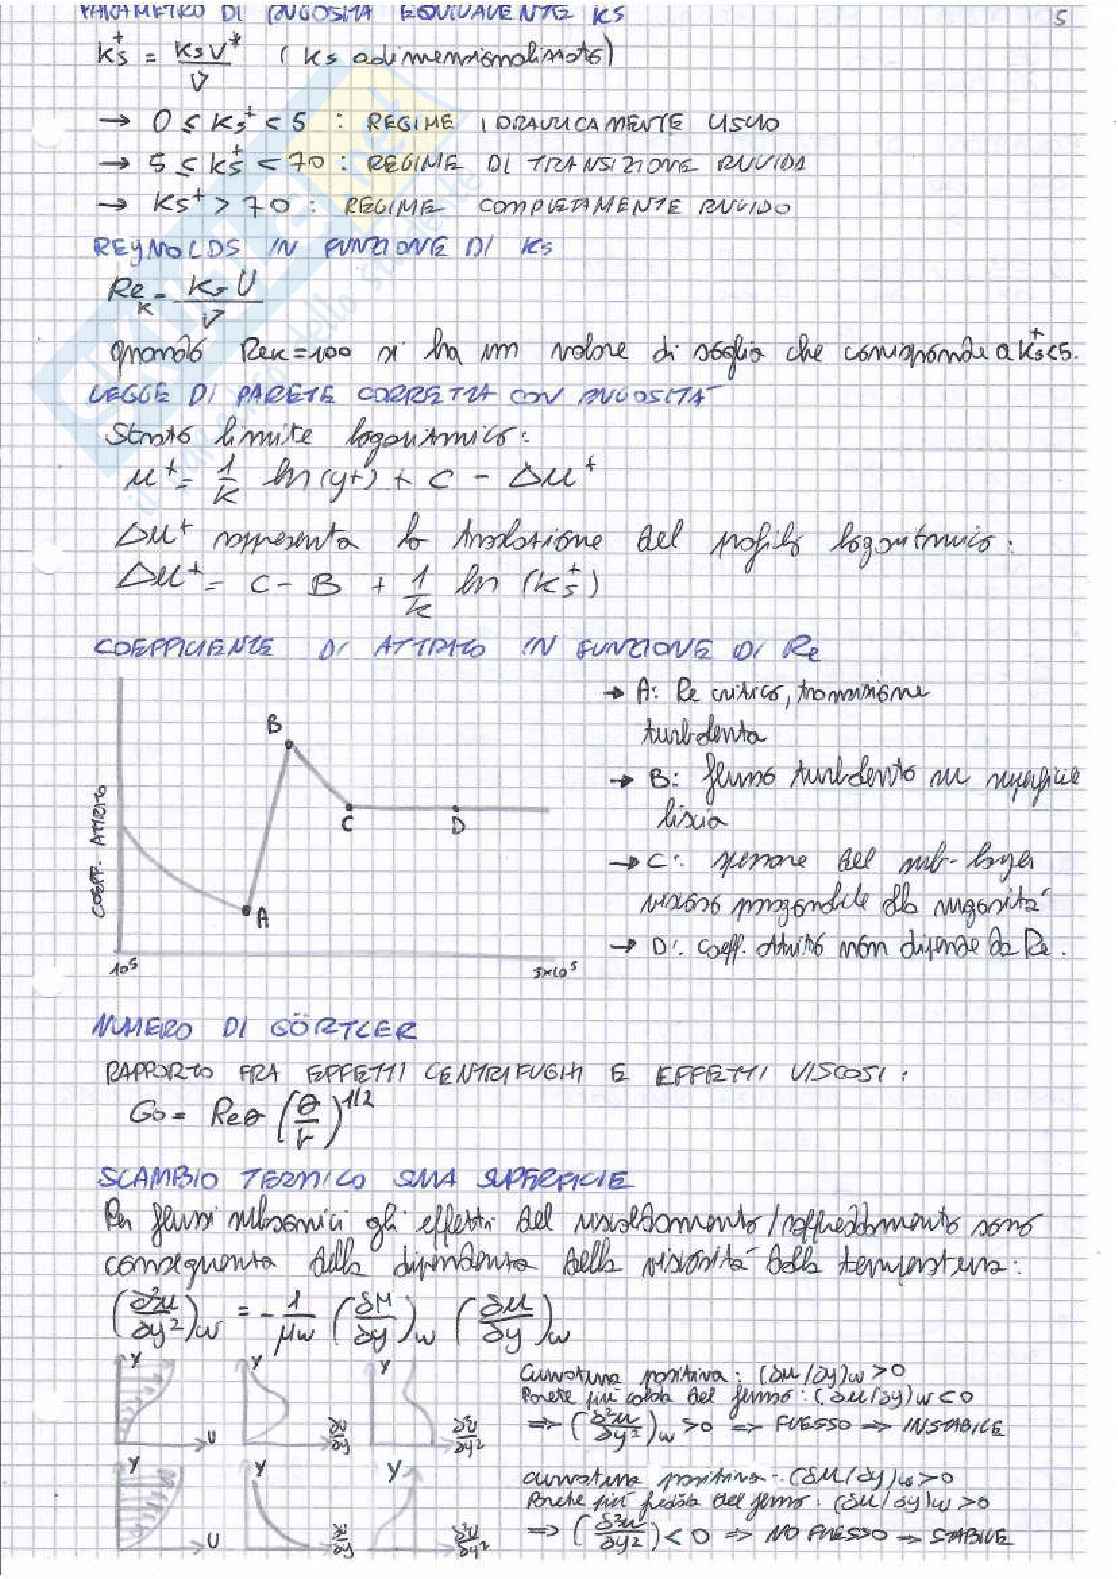 PARAMETRO DI RUGOSITÀ EQUIVALENTE KS
5
Ks⁺ = KsV*/ν (Ks adimensionalizzato)
→ 0 ≤ Ks⁺ < 5 : REGIME IDRAULICAMENTE LISCIO
→ 5 ≤ Ks⁺ < 70 : REGIME DI TRANSIZIONE RUVIDA
→ Ks⁺ > 70 : REGIME COMPLETAMENTE RUVIDO
REYNOLDS IN FUNZIONE DI Ks
Re_K = Ks U/ν
quando Rek=100 si ha un valore di soglia che corrisponde a Ks⁺<5.
LEGGE DI PARETE CORRETTA CON RUGOSITÀ
Strato limite logaritmico:
u⁺ = 1/k ln(y+) + C - Δu⁺
Δu⁺ rappresenta la traslazione del profilo logaritmico:
Δu⁺ = C - B + 1/k ln(Ks⁺)
COEFFICIENTE DI ATTRITO IN FUNZIONE DI Re
COEFF. ATTRITO
A
B
C
D
10⁵
3x10⁵
→ A: Re critico, transizione
turbolenta
→ B: flusso turbolento su superficie
liscia
→ C: spessore del sub-layer
viscoso paragonabile alla rugosità
→ D: coeff. attrito non dipende da Re.
NUMERO DI GÖRTLER
RAPPORTO FRA EFFETTI CENTRIFUGHI E EFFETTI VISCOSI:
Go = Reθ (θ/r)^1/2
SCAMBIO TERMICO SULLA SUPERFICIE
Per flussi subsonici gli effetti del riscaldamento/raffreddamento sono
conseguenza della dipendenza della viscosità dalla temperatura:
(∂²u/∂y²)w = -1/μw (∂μ/∂y)w (∂u/∂y)w
Y U Y ∂U/∂y Y ∂²U/∂y²
Curvatura positiva: (∂u/∂y)w >0
Parete più calda del flusso: (∂μ/∂y)w <0
⇒ (∂²u/∂y²)w >0 ⇒ FLESSO ⇒ INSTABILE
Y U Y ∂U/∂y Y ∂²U/∂y²
curvatura positiva: (∂u/∂y)w >0
Parete più fredda del flusso: (∂μ/∂y)w >0
⇒ (∂²u/∂y²) < 0 ⇒ NO FLESSO ⇒ STABILE